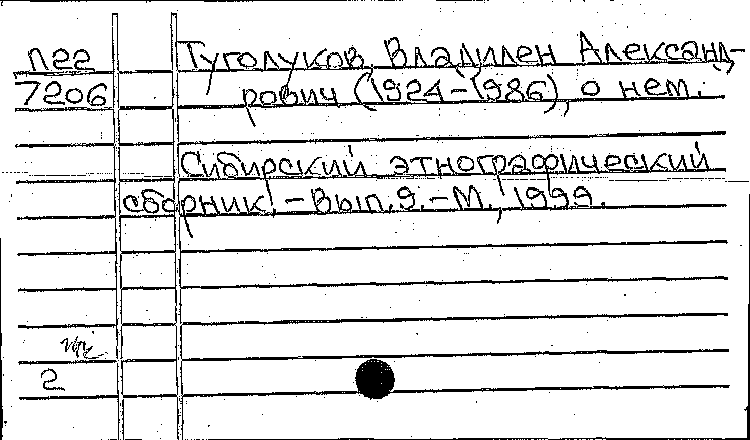 П22 Туголуков, Владилен Александ-
7206 рович (1924-1986), о нем:
Сибирский этнографический
сборник. - Вып. 9. - М., 1999.
2